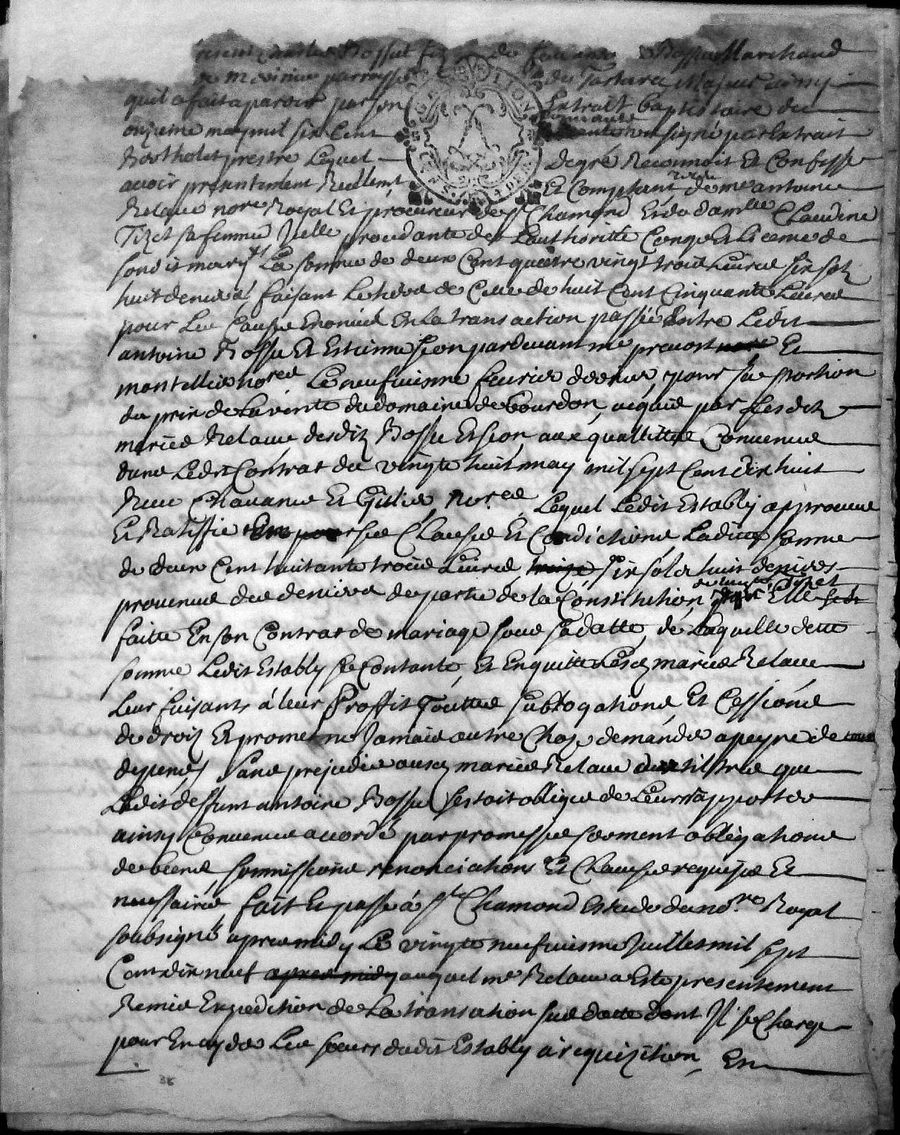 Bossu fi de feu Bossu Marchand
parroisse du Tartara Majeur ainsy
quil a fait aparoir par son Extrait baptistaire du
onzieme may mil six cent soixante signé par Extrait
Bertholet prestre Lequel de gré Reconnoit Et Confesse
avoir presentement Reellemt Et Comptant de me antoine
Relave nore Royal Et procureur de St Chamond Et de damlle Claudine
Tizet sa femme Icelle procedante de Lauthoritte Conge Et licence de
sondit mary La somme de deux Cent quatre vingt trois Livres six solz
huit deniers faisant Le tiers de Celle de huit Cent Cinquante Livres
pour Les Causes Enoncés En La transaction passée Entre Ledit
antoine Bossu Et Estienne sion pardevant me prevost Et
montellier nores Le neufvieme fevrier dernier pour sa portion
du prix de La vente du domaine de bourdon acquis par Lesdits
mariés Relave desdits Bossu Et sion aux quallittés Convenues
dans Ledit Contrat du vingt huit may mil sept Cent dix huit
Reçu Chavance Et Gillier nores Lequel Ledit Estably approuve
Et Ratiffie Clauses Et Condictions Laditte somme
de deux Cent huitante trois Livres six sols huit deniers
provenue des deniers du partie de la Constitution Tizet Elle
faitte En son Contrat de mariage sous sa datte, de Laquelle ditte
somme Ledit Estably se Contante, Et En quitte Lesd mariés Relave
Leur faisants à leur Proffit Touttes subrogations Et Cessions
de droiz Et promet ne Jamais autre Chose demander a peyne de tous
dépens sans prejudice ausd mariés Relave que
Ledit deffunt antoine Bossu sestoit obligé de Leur rapporter
ainsy Convenu accordé par promesses serment obligations
de biens soumissions renonciations Et Clauses requises Et
necessaires fait Et passé à St Chamond Estude du nore Royal
soubsigné apres midy Le vingt neufvieme Juillet mil sept
Cent dix neuf auquel me Relave a Esté presentement
Remis Expedition de La transation sus datte dont Il se Charge
pour En ayder Les sœurs dudit Estably a requizition, En